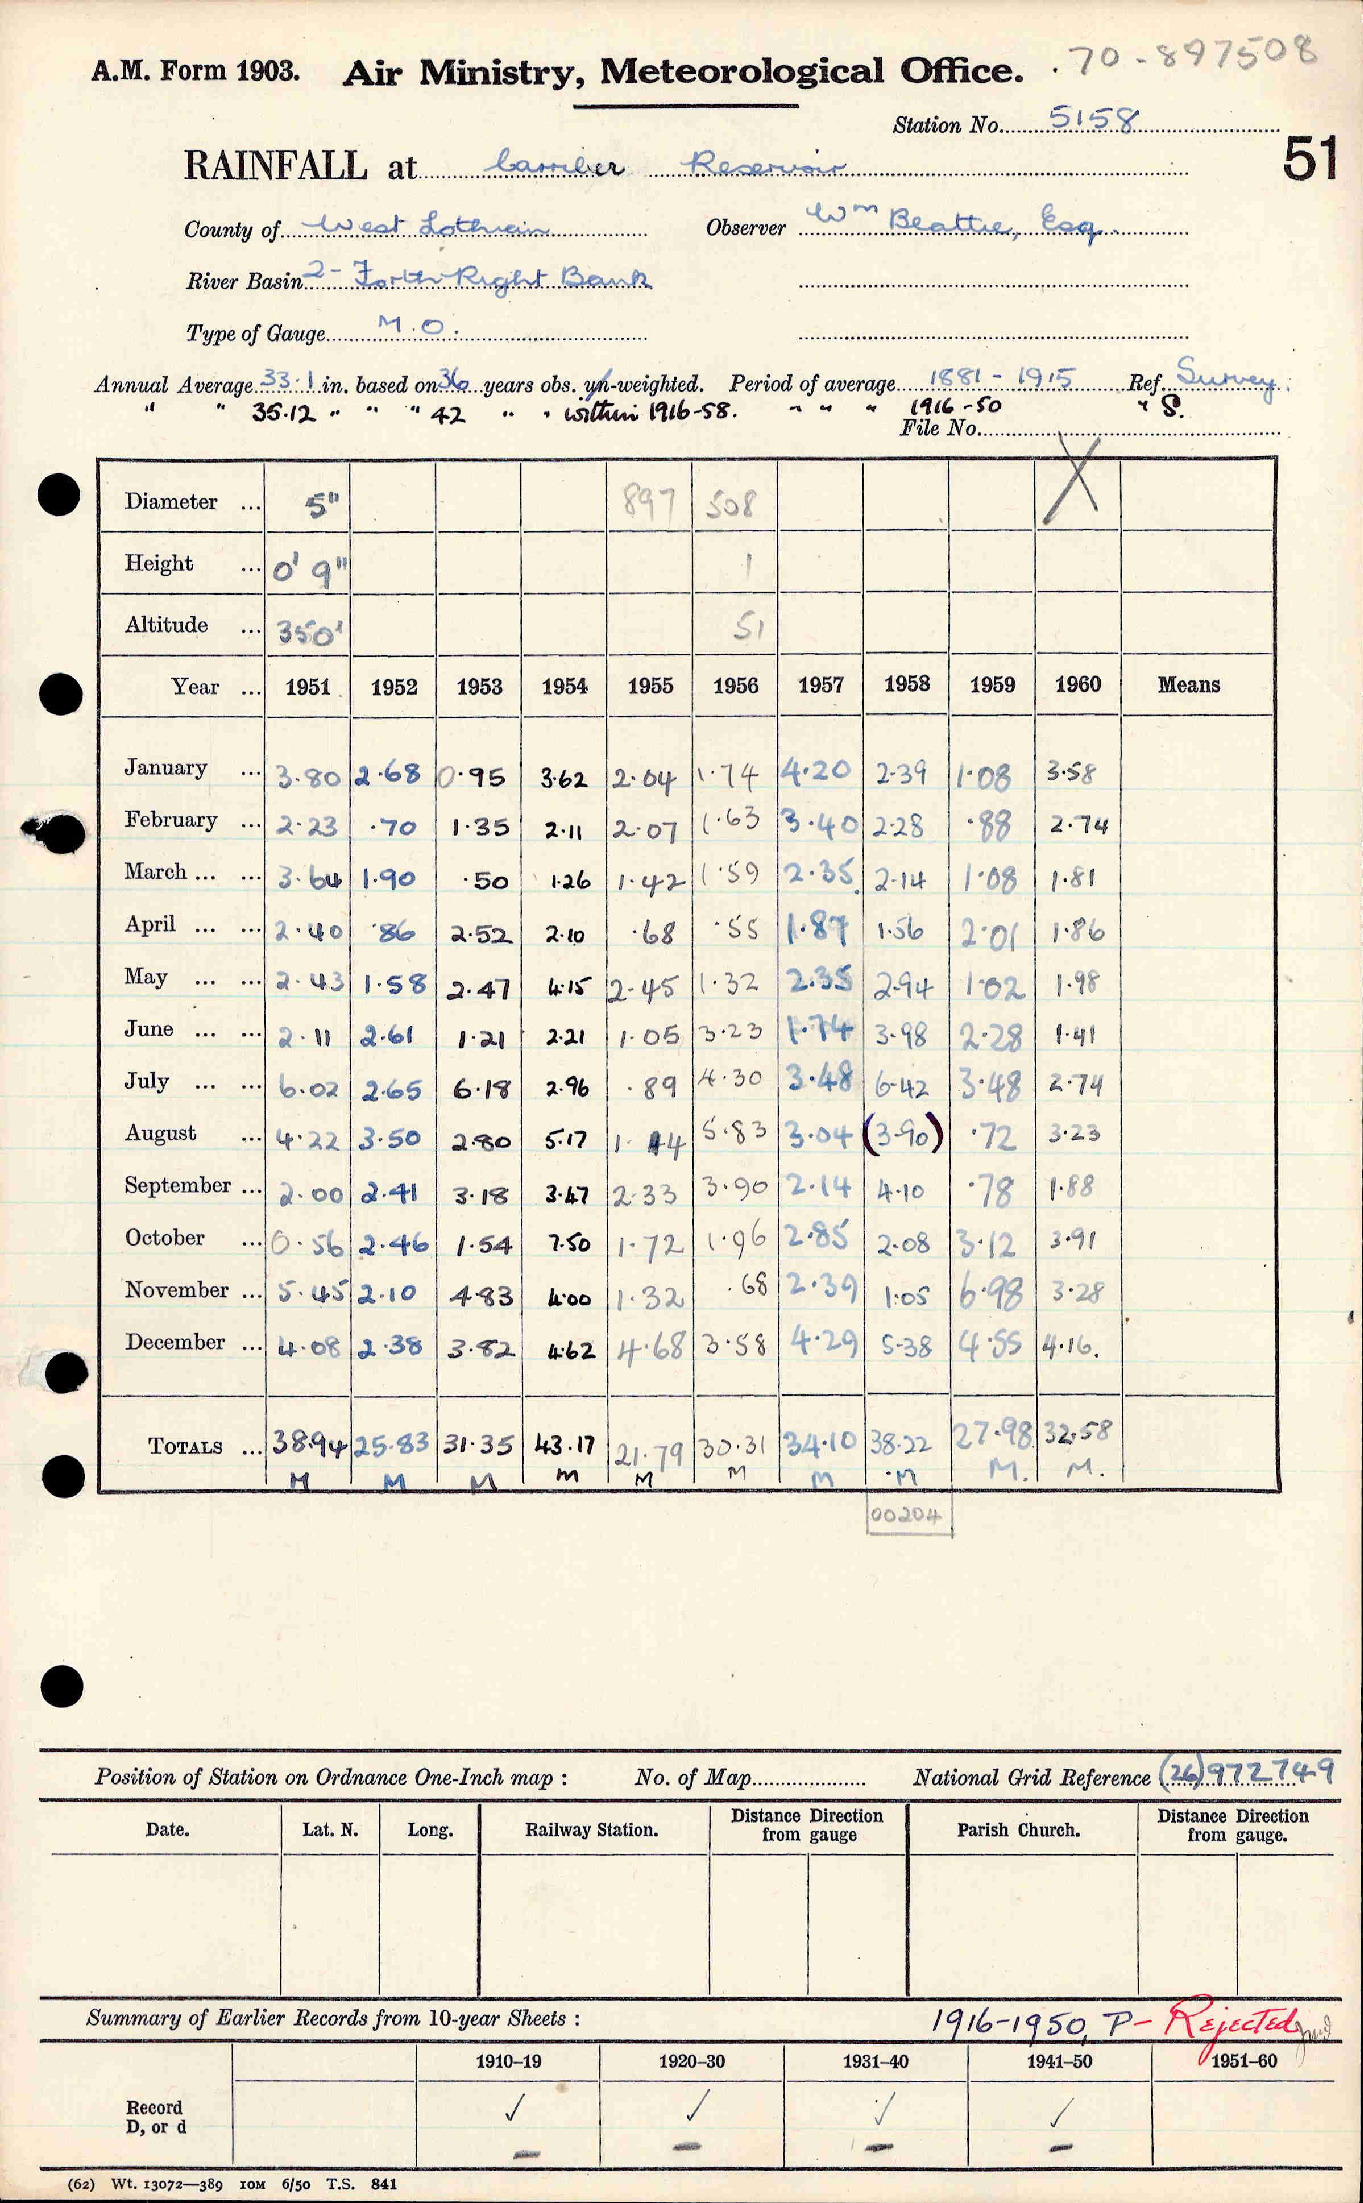 A.M. Form 1903. Air Ministry, Meteorological Office. 70-897508
Station No. 5158
51
RAINFALL at Carriber Reservoir
County of West Lothian Observer Wm Beattie, Esq.
River Basin 2 - Forth Right Bank
Type of Gauge M.O.
Annual Average 33.1 in. based on 36 years obs. un-weighted. Period of average 1881-1915 Ref. Survey.
" " 35.12 " " " 42 " " within 1916-58. " " " 1916-50 " S.
File No.
Diameter ... 5" 897 508 X
Height ... 0' 9" 1
Altitude ... 350' 51
Year ... 1951 1952 1953 1954 1955 1956 1957 1958 1959 1960 Means
January ... 3.80 2.68 0.95 3.62 2.04 1.74 4.20 2.39 1.08 3.58
February ... 2.23 .70 1.35 2.11 2.07 1.63 3.40 2.28 .88 2.74
March ... ... 3.64 1.90 .50 1.26 1.42 1.59 2.35 2.14 1.08 1.81
April ... ... 2.40 .86 2.52 2.10 .68 .55 1.87 1.56 2.01 1.86
May ... ... 2.43 1.58 2.47 4.15 2.45 1.32 2.35 2.94 1.02 1.98
June ... ... 2.11 2.61 1.21 2.21 1.05 3.23 1.74 3.98 2.28 1.41
July ... ... 6.02 2.65 6.18 2.96 .89 4.30 3.48 6.42 3.48 2.74
August ... 4.22 3.50 2.80 5.17 1.14 5.83 3.04 (3.90) .72 3.23
September ... 2.00 2.41 3.18 3.47 2.33 3.90 2.14 4.10 .78 1.88
October ... 0.56 2.46 1.54 7.50 1.72 1.96 2.85 2.08 3.12 3.91
November ... 5.45 2.10 4.83 4.00 1.32 .68 2.39 1.05 6.98 3.28
December ... 4.08 2.38 3.82 4.62 4.68 3.58 4.29 5.38 4.55 4.16.
TOTALS ... 38.94 25.83 31.35 43.17 21.79 30.31 34.10 38.22 27.98 32.58
M M M M M M M M M. M.
00204
Position of Station on Ordnance One-Inch map : No. of Map National Grid Reference (26) 972749
Date. Lat. N. Long. Railway Station. Distance from gauge Direction Parish Church. Distance from gauge. Direction
Summary of Earlier Records from 10-year Sheets : 1916-1950, P - Rejected
1910–19 1920–30 1931–40 1941–50 1951–60
Record D, or d ✓ ✓ ✓ ✓
– – – –
(62) Wt. 13072—389 10M 6/50 T.S. 841